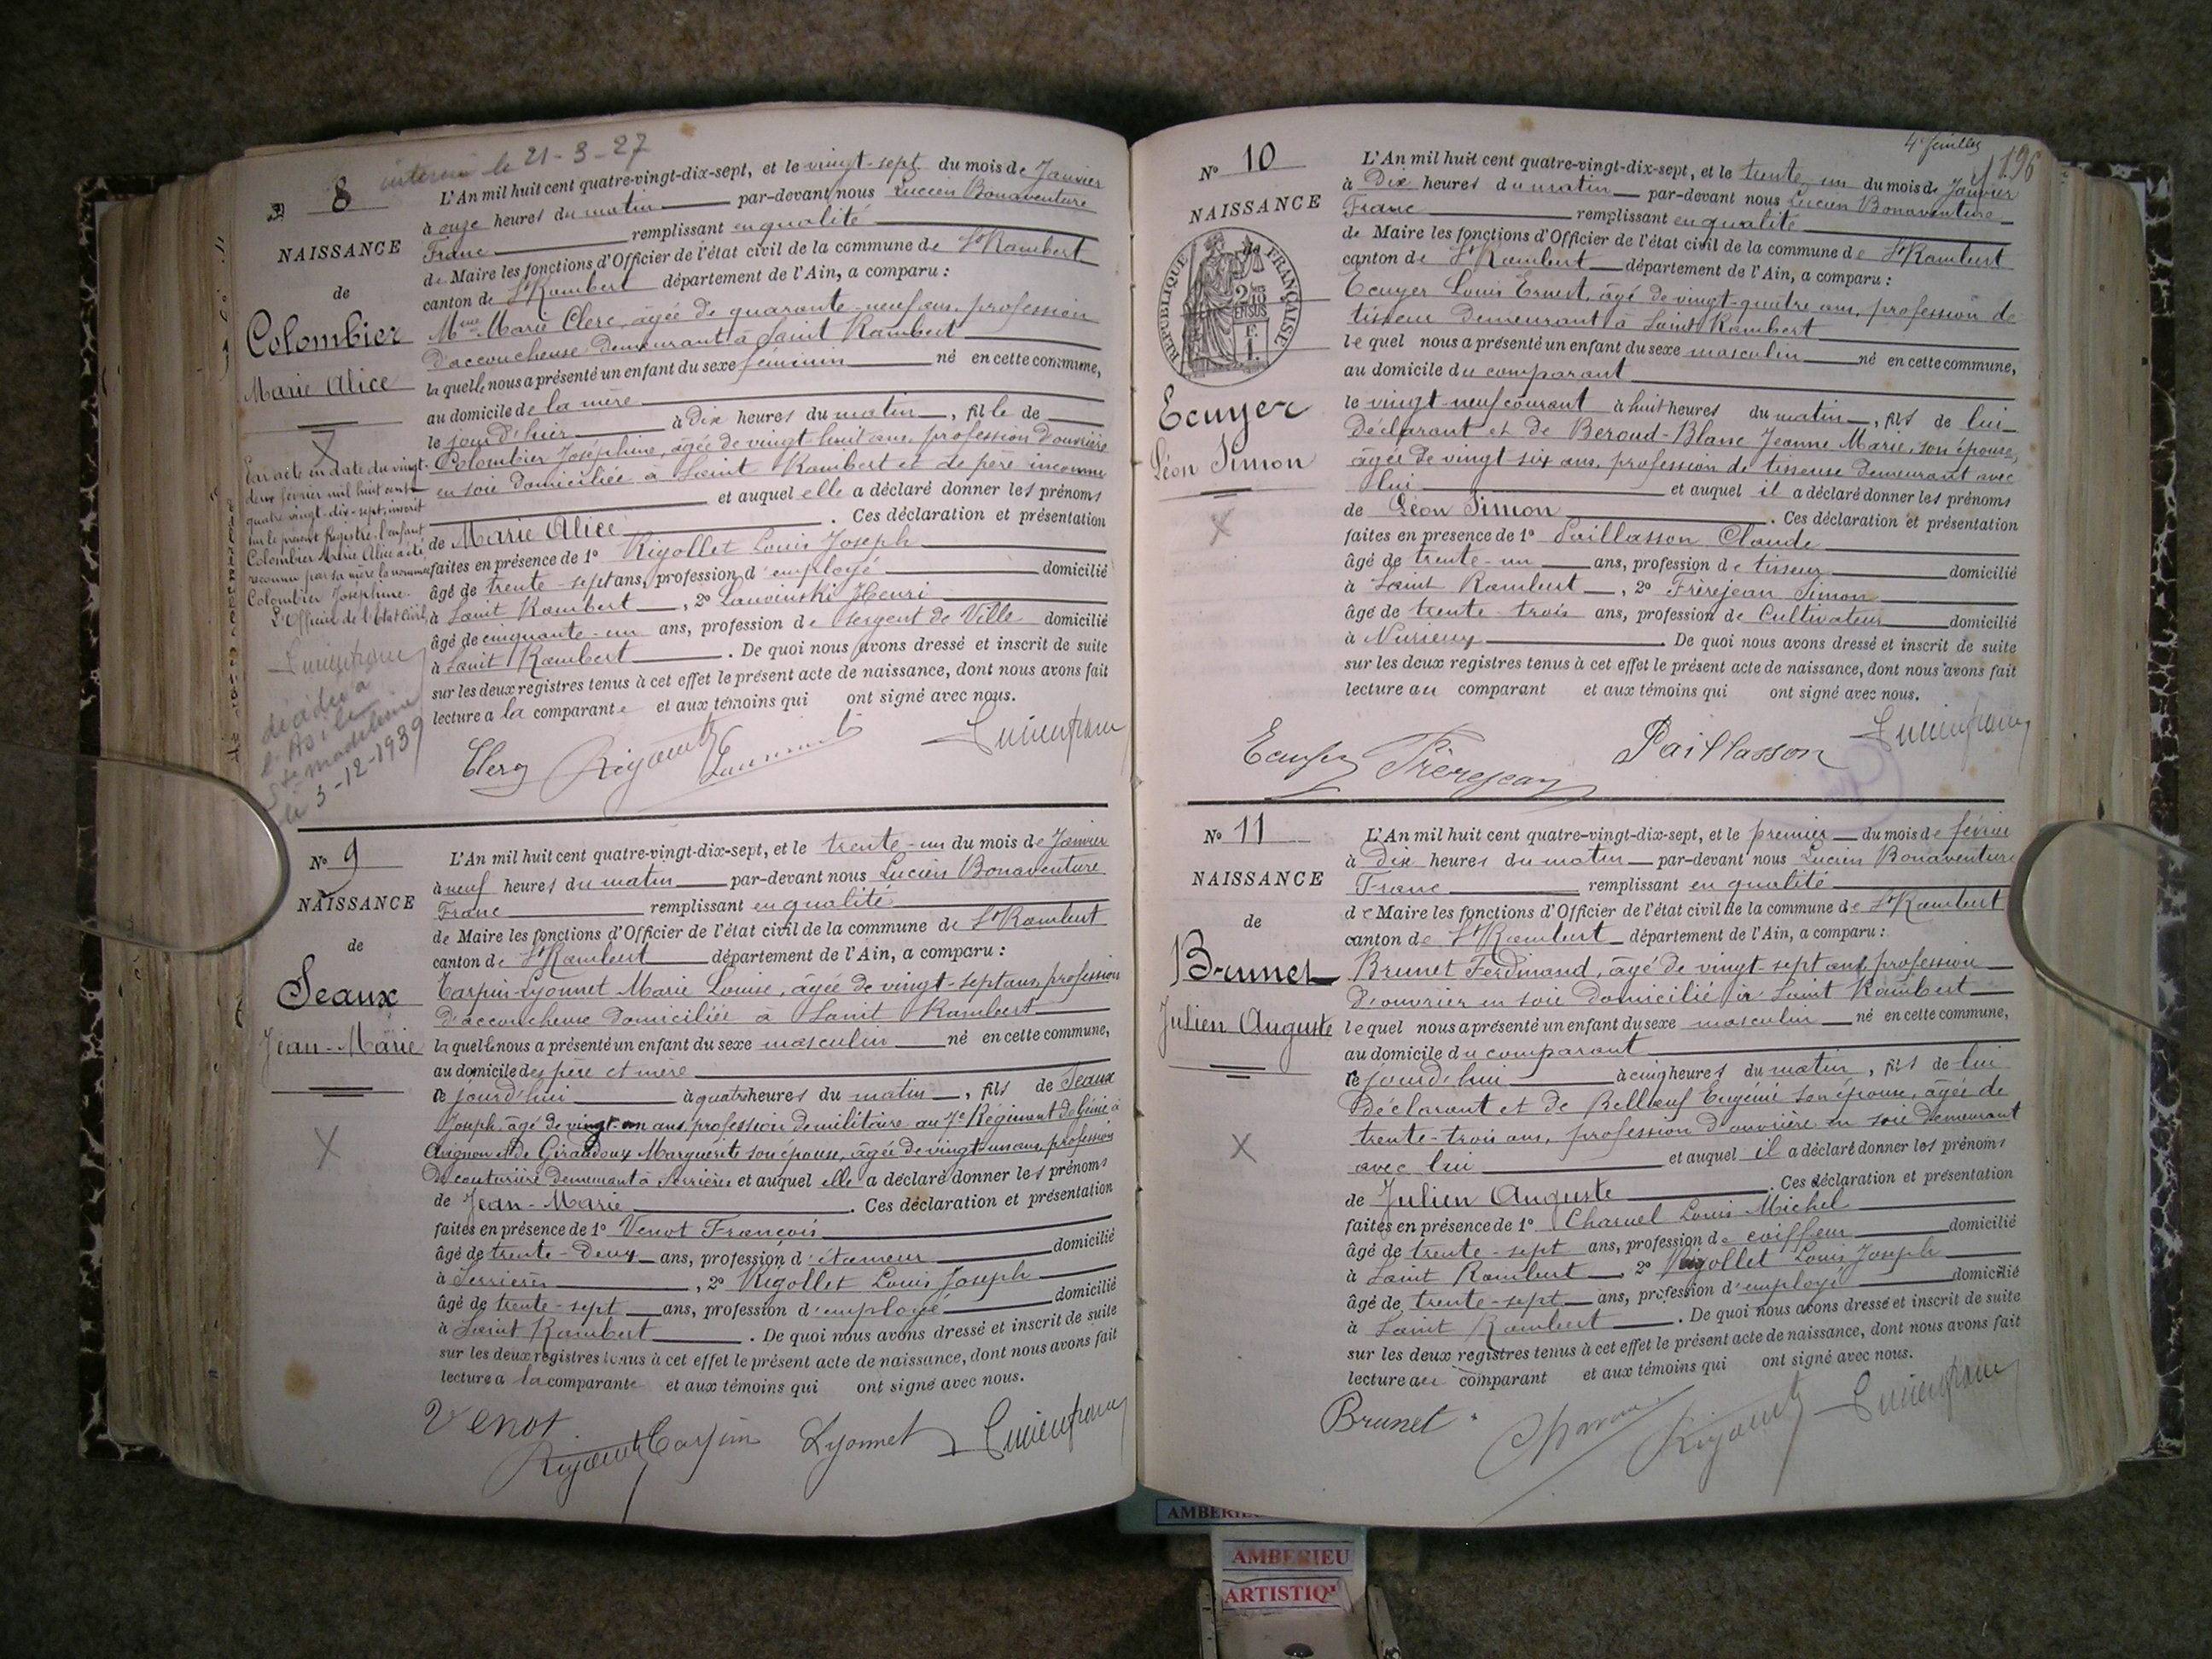 interné le 21-3-27
8
NAISSANCE
de
Colombier
Marie Alice
X
Par acte en date du vingt-
deux février mil huit cent
quatre-vingt-dix-sept, inscrit
sur le présent Registre, l'enfant
Colombier Marie Alice a été
reconnu par sa mère la nommée
Colombier Joséphine.
L'Officier de l'Etat Civil,
Lucien franc
décédée à
l'Asile
Ste madeleine
le 3-12-1939
L'An mil huit cent quatre-vingt-dix-sept, et le vingt-sept du mois de Janvier
à onze heures du matin par-devant nous Lucien Bonaventure
Franc remplissant en qualité
de Maire les fonctions d'Officier de l'état civil de la commune de St Rambert
canton de St Rambert département de l'Ain, a comparu :
Mme Marie Clerc, âgée de quarante-neuf ans, profession
d'accoucheuse demeurant à Saint Rambert
laquelle nous a présenté un enfant du sexe féminin né en cette commune,
au domicile de la mère
le jour d'hier à Dix heures du matin, fille de
Colombier Joséphine, âgée de vingt huit ans, profession d'ouvrière
en soie domiciliée à Saint Rambert et de père inconnu
et auquel elle a déclaré donner les prénoms
de Marie Alice. Ces déclaration et présentation
faites en présence de 1° Rigollet Louis Joseph
âgé de trente-sept ans, profession d'employé domicilié
à Saint Rambert, 2° Henri
âgé de cinquante-un ans, profession de Sergent de Ville domicilié
à Saint Rambert. De quoi nous avons dressé et inscrit de suite
sur les deux registres tenus à cet effet le présent acte de naissance, dont nous avons fait
lecture a la comparante et aux témoins qui ont signé avec nous.
Clerc Rigollet Lucien franc
N° 9
NAISSANCE
de
Seaux
Jean-Marie
X
L'An mil huit cent quatre-vingt-dix-sept, et le trente-un du mois de Janvier
à neuf heures du matin par-devant nous Lucien Bonaventure
Franc remplissant en qualité
de Maire les fonctions d'Officier de l'état civil de la commune de St Rambert
canton de St Rambert département de l'Ain, a comparu :
Carpin-Lyonnet Marie Louise, âgée de vingt-sept ans, profession
d'accoucheuse domiciliée à Saint Rambert
laquelle nous a présenté un enfant du sexe masculin né en cette commune,
au domicile des père et mère
le jourd'hui à quatre heures du matin, fils de Seaux
Joseph, âgé de vingt-un ans, profession de militaire au 7e Régiment de Génie à
Avignon et de Giraudoux Marguerite son épouse, âgée de vingt un ans, profession
de couturière demeurant à Serrières et auquel elle a déclaré donner les prénoms
de Jean-Marie. Ces déclaration et présentation
faites en présence de 1° Venot François
âgé de trente-deux ans, profession d'étameur domicilié
à Serrières, 2° Rigollet Louis Joseph
âgé de trente-sept ans, profession d'employé domicilié
à Saint Rambert. De quoi nous avons dressé et inscrit de suite
sur les deux registres tenus à cet effet le présent acte de naissance, dont nous avons fait
lecture a la comparante et aux témoins qui ont signé avec nous.
Venot Rigollet Carpin Lyonnet Lucien franc
4e feuillet
196
N° 10
NAISSANCE
REPUBLIQUE FRANÇAISE
Ecuyer
Léon Simon
X
L'An mil huit cent quatre-vingt-dix-sept, et le trente-un du mois de Janvier
à Dix heures du matin par-devant nous Lucien Bonaventure
Franc remplissant en qualité
de Maire les fonctions d'Officier de l'état civil de la commune de St Rambert
canton de St Rambert département de l'Ain, a comparu :
Ecuyer Louis Ernest, âgé de vingt-quatre ans, profession de
tisseur demeurant à Saint Rambert
lequel nous a présenté un enfant du sexe masculin né en cette commune,
au domicile du comparant
le vingt-neuf courant à huit heures du matin, fils de lui
déclarant et de Beroud-Blanc Jeanne Marie, son épouse,
âgée de vingt-six ans, profession de tisseuse demeurant avec
lui et auquel il a déclaré donner les prénoms
de Léon Simon. Ces déclaration et présentation
faites en présence de 1° Paillasson Claude
âgé de trente-un ans, profession de tisseur domicilié
à Saint Rambert, 2° Frèrejean Simon
âgé de trente-trois ans, profession de Cultivateur domicilié
à Nurieux. De quoi nous avons dressé et inscrit de suite
sur les deux registres tenus à cet effet le présent acte de naissance, dont nous avons fait
lecture au comparant et aux témoins qui ont signé avec nous.
Ecuyer Frèrejean Paillasson Lucien franc
N° 11
NAISSANCE
de
Brunet
Julien Auguste
X
L'An mil huit cent quatre-vingt-dix-sept, et le premier du mois de février
à Dix heures du matin par-devant nous Lucien Bonaventure
Franc remplissant en qualité
de Maire les fonctions d'Officier de l'état civil de la commune de St Rambert
canton de St Rambert département de l'Ain, a comparu :
Brunet Ferdinand, âgé de vingt-sept ans, profession
d'ouvrier en soie domicilié à Saint Rambert
lequel nous a présenté un enfant du sexe masculin né en cette commune,
au domicile du comparant
le jourd'hui à cinq heures du matin, fils de lui
déclarant et de Bellœuf Eugénie son épouse, âgée de
trente-trois ans, profession d'ouvrière en soie demeurant
avec lui et auquel il a déclaré donner les prénoms
de Julien Auguste. Ces déclaration et présentation
faites en présence de 1° Charvel Louis Michel
âgé de trente-sept ans, profession de coiffeur domicilié
à Saint Rambert, 2° Rigollet Louis Joseph
âgé de trente-sept ans, profession d'employé domicilié
à Saint Rambert. De quoi nous avons dressé et inscrit de suite
sur les deux registres tenus à cet effet le présent acte de naissance, dont nous avons fait
lecture au comparant et aux témoins qui ont signé avec nous.
Brunet Rigollet Lucien franc
AMBERIEU
ARTISTIQ